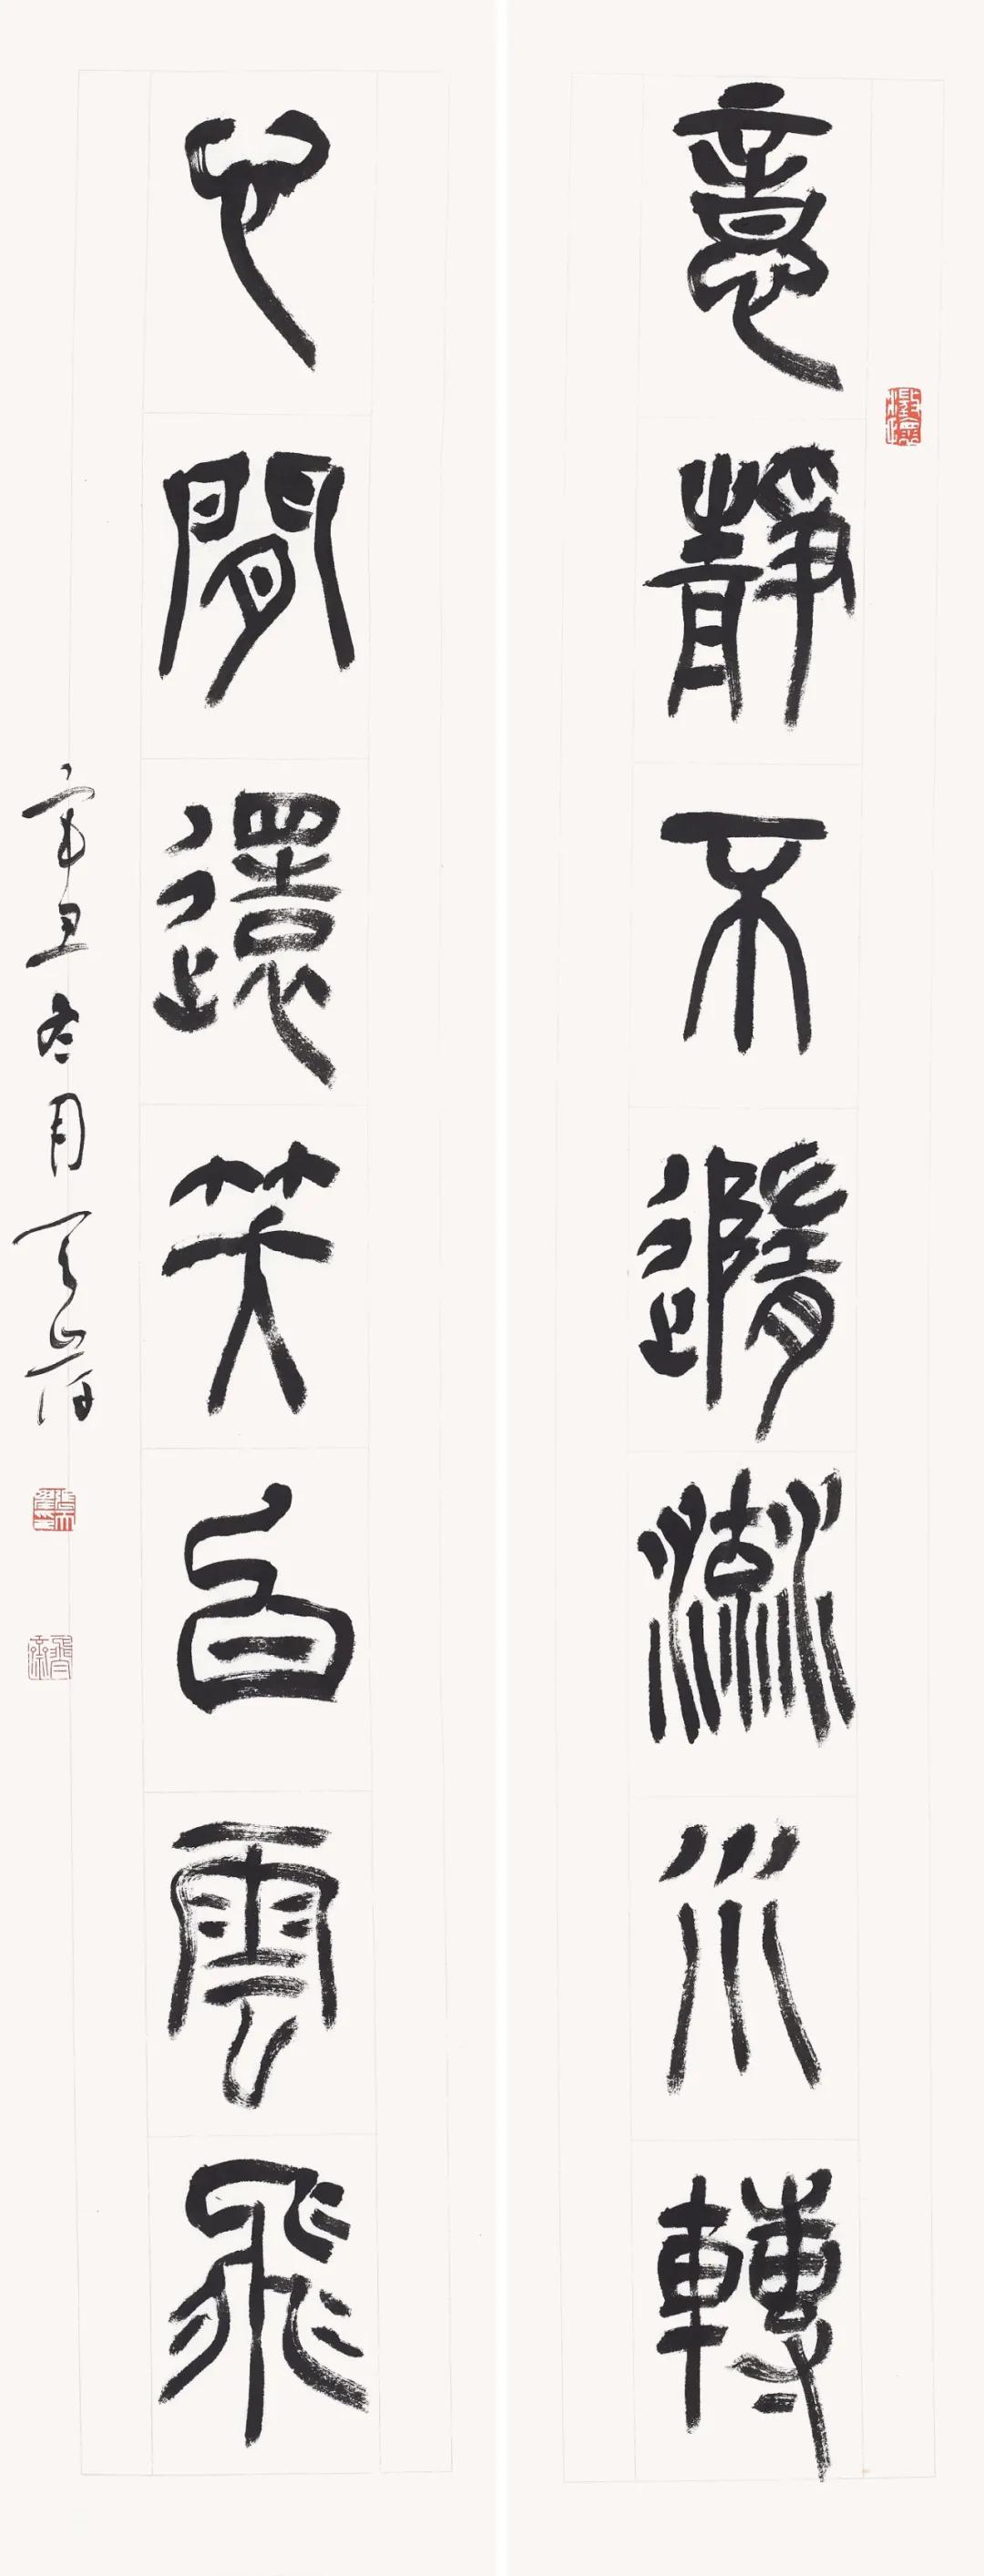 意靜不隨流水轉
心閒還笑白雲飛
辛丑冬月